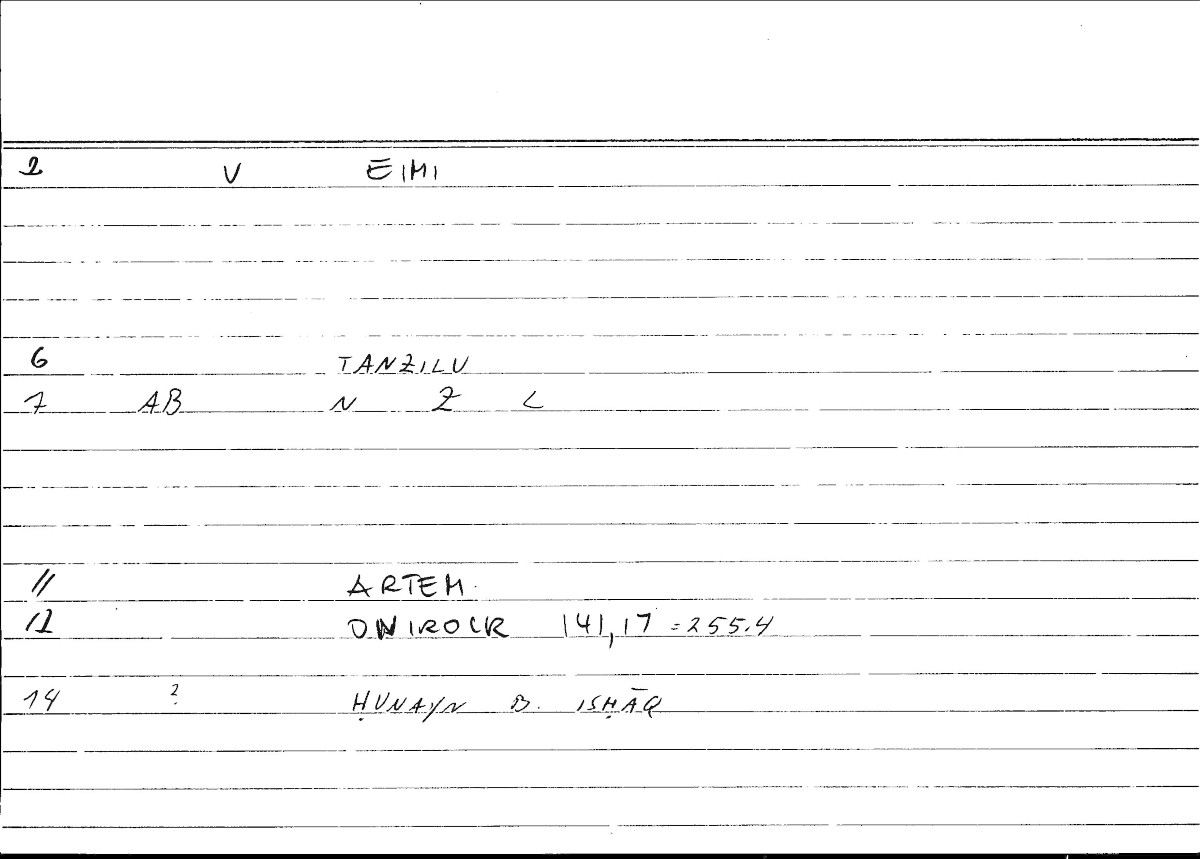 2 V ĒIMI
6 TANZILU
7 AB N Z L
11 ARTEM.
12 ONIROCR 141,17 = 255.4
14 ? ḤUNAYN B. ISḤĀQ